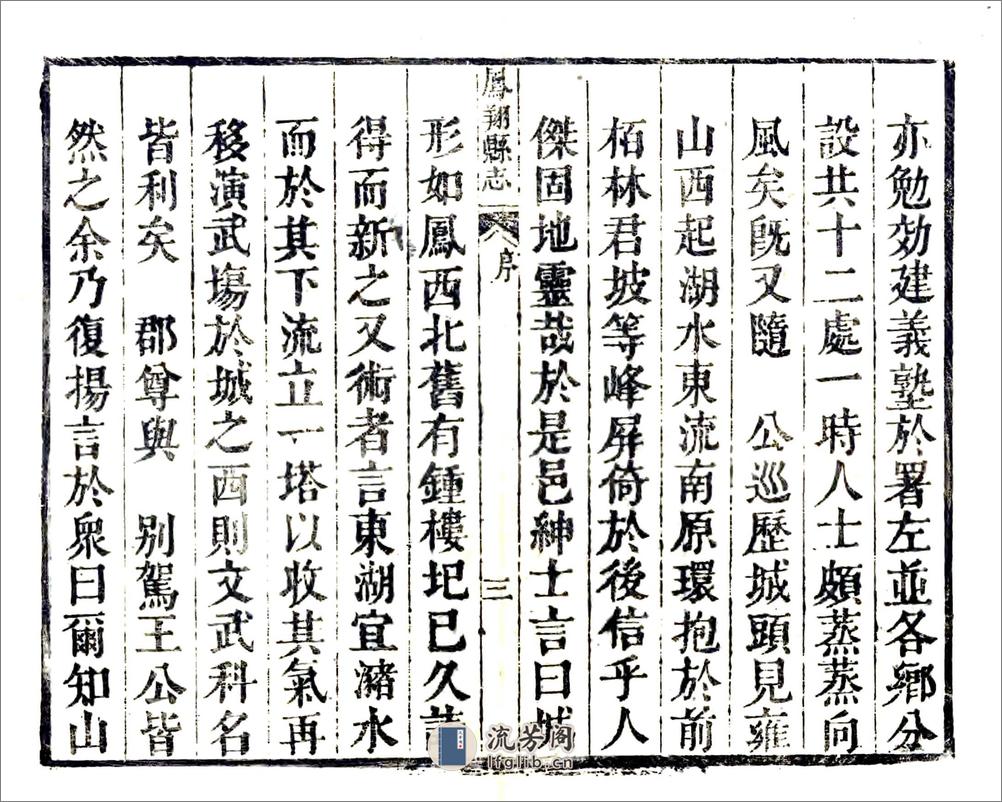 亦勉効建義塾於署左並各鄉分
設共十二處一時人士頗蒸蒸向
風矣旣又隨　公巡歷城頭見雍
山西起湖水東流南原環抱於前
栢林君坡等峰屛倚於後信乎人
傑固地靈哉於是邑紳士言曰城
鳳翔縣志　序　三
形如鳳西北舊有鍾樓圮已久
得而新之又術者言東湖宜瀦水
而於其下流立一塔以收其氣再
移演武塲於城之西則文武科名
皆利矣　郡尊與　別駕王公皆
然之余乃復揚言於衆曰爾知山
流芳阁
lfglib.cn